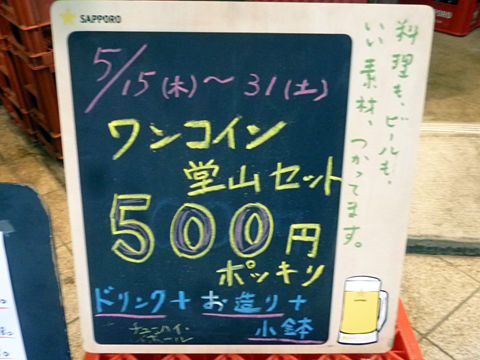 SAPPORO
5/15(木)〜31(土)
ワンコイン
堂山セット
500円
ポッキリ
ドリンク+お造り+
小鉢
チューハイ・
料理も、ビールも、
いい素材、つかってます。